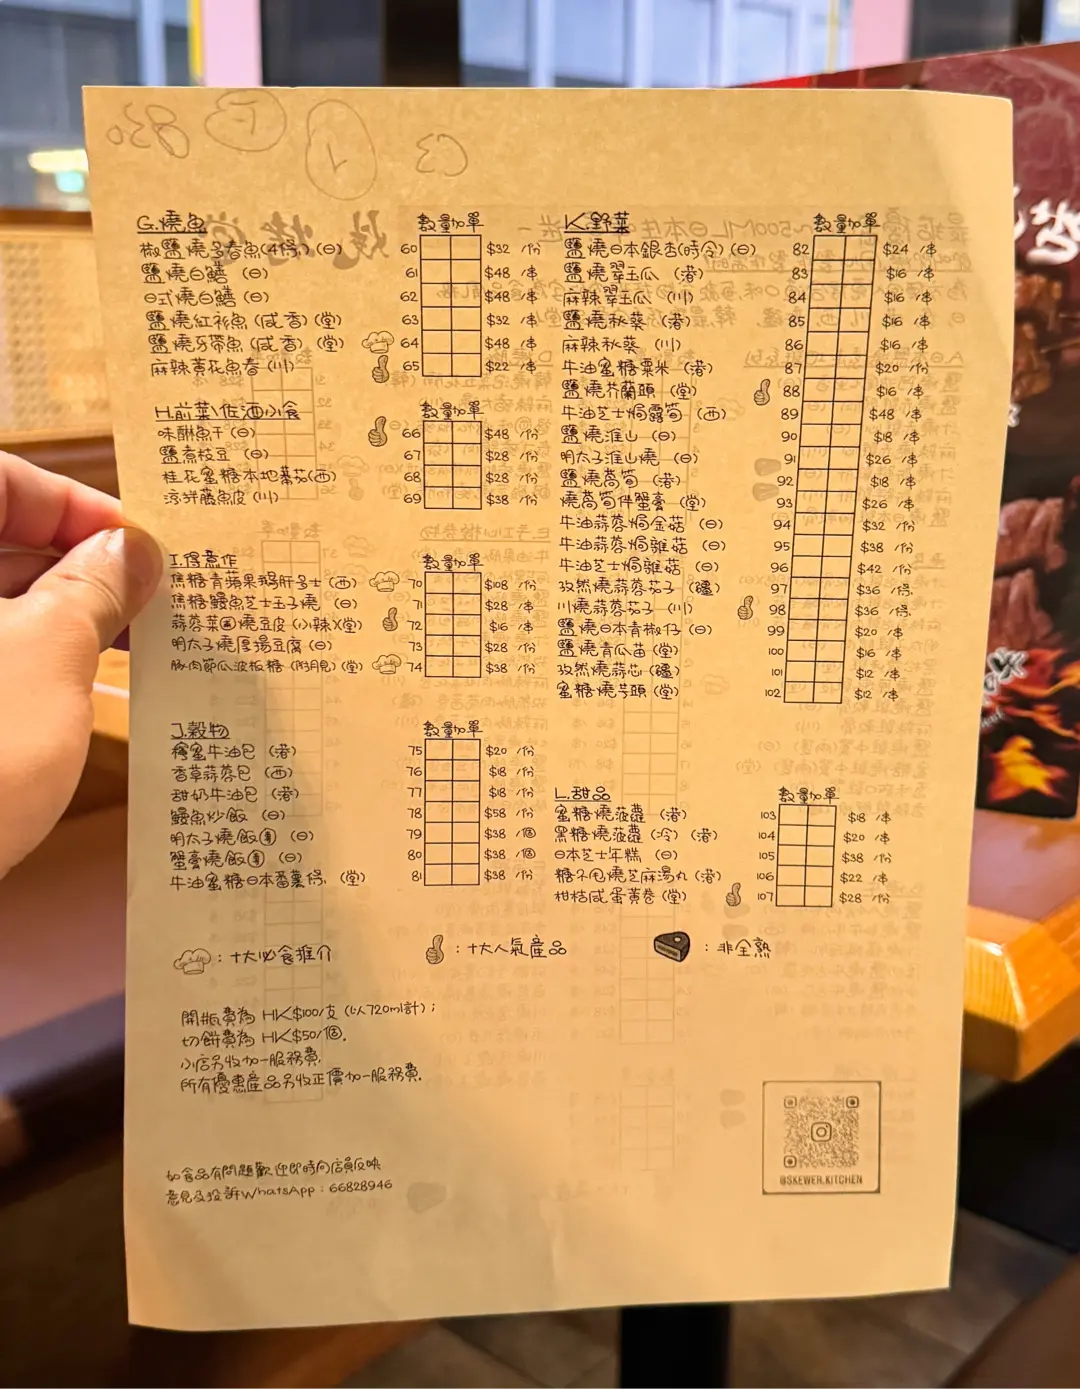 830
E
1
C3
G.燒魚 數量加單
椒鹽燒多春魚(4條)(日) 60 $32 /份
鹽燒白鱔 (日) 61 $48 /串
日式燒白鱔 (日) 62 $48 /串
鹽燒紅衫魚 (咸香)(堂) 63 $32 /串
鹽燒牙帶魚 (咸香)(堂) 64 $48 /串
麻辣黃花魚春 (川) 65 $22 /串
H.前菜\佐酒小食 數量加單
味醂魚干 (日) 66 $48 /份
鹽煮枝豆 (日) 67 $28 /份
桂花蜜糖本地番茄(西) 68 $28 /份
涼拌薩魚皮 (川) 69 $38 /份
I.得意作 數量加單
焦糖青蘋果鵝肝多士 (西) 70 $108 /份
焦糖鰻魚芝士玉子燒 (日) 71 $28 /串
蒜蓉菜圃燒豆皮 (小辣)(堂) 72 $6 /串
明太子燒厚揚豆腐 (日) 73 $28 /份
豚肉節瓜波板糖 (附月見) (堂) 74 $38 /份
J.穀物 數量加單
檸蜜牛油包 (港) 75 $20 /份
香草蒜蓉包 (西) 76 $18 /份
甜奶牛油包 (港) 77 $18 /份
鰻魚炒飯 (日) 78 $58 /份
明太子燒飯團 (日) 79 $38 /個
蟹膏燒飯團 (日) 80 $38 /個
牛油蜜糖日本番薯條 (堂) 81 $38 /份
K.野菜 數量加單
鹽燒日本銀杏(時令)(日) 82 $24 /串
鹽燒翠玉瓜 (港) 83 $16 /串
麻辣翠玉瓜 (川) 84 $16 /串
鹽燒秋葵 (港) 85 $16 /串
麻辣秋葵 (川) 86 $16 /串
牛油蜜糖粟米 (港) 87 $20 /份
鹽燒芥蘭頭 (堂) 88 $16 /串
牛油芝士焗露筍 (西) 89 $48 /串
鹽燒淮山 (日) 90 $18 /串
明太子淮山燒 (日) 91 $26 /串
鹽燒萵筍 (港) 92 $18 /串
燒萵筍伴蟹膏 (堂) 93 $26 /串
牛油蒜蓉焗金菇 (日) 94 $32 /份
牛油蒜蓉焗雜菇 (日) 95 $38 /份
牛油芝士焗雜菇 (日) 96 $42 /份
孜然燒蒜蓉茄子 (疆) 97 $36 /條
川燒蒜蓉茄子 (川) 98 $36 /條
鹽燒日本青椒仔 (日) 99 $20 /串
鹽燒青瓜苗 (堂) 100 $16 /串
孜然燒蒜芯 (疆) 101 $12 /串
蜜糖燒芋頭 (堂) 102 $12 /串
L.甜品 數量加單
蜜糖燒菠蘿 (港) 103 $18 /串
黑糖燒菠蘿 (冷) (港) 104 $20 /串
日本芝士年糕 (日) 105 $38 /份
糖不甩燒芝麻湯丸 (港) 106 $22 /串
柑桔咸蛋黃卷 (堂) 107 $28 /份
：十大必食推介
：十大人氣產品
：非全熟
開瓶費為 HK$100/支 (以720ml計)；
切餅費為 HK$50/個.
小店另收加一服務費.
所有優惠產品另收正價加一服務費.
如食品有問題歡迎即時向店員反映
意見及投訴WhatsApp：66828946
@SKEWER.KITCHEN